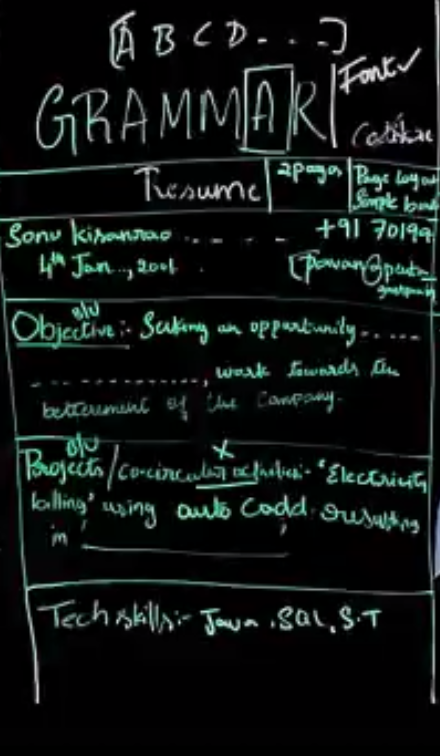 [A B C D - . . .]
GRAMMAR Font ✓
Resume 2 pages Page Layout
Simple
Sonu kisanrao - - - - - +91 70199
4th Jan.., 2001
B/U
Objective :- Seeking an opportunity - - - - -
- - - - - - - - - - - - - , work towards the
betterment of the Company.
B/U X
Projects / co-circular activities:- "Electricity
billing" using auto Codd resulting
in
Tech skills:- Java, SQL, S.T